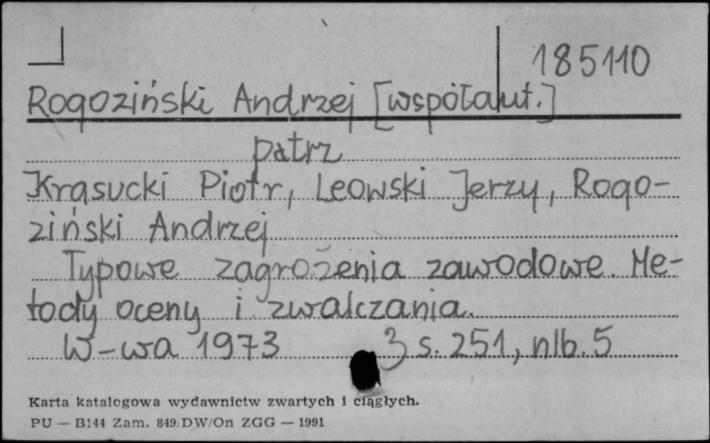 185110
Rogoziński Andrzej [współaut.]
patrz
Krasucki Piotr, Leowski Jerzy, Rogo-
ziński Andrzej
Typowe zagrożenia zawodowe. Me-
tody oceny i zwalczania.
W-wa 1973 3 s. 251, nlb. 5
Karta katalogowa wydawnictw zwartych i ciągłych.
PU — B144 Zam. 849/DW/On ZGG — 1991